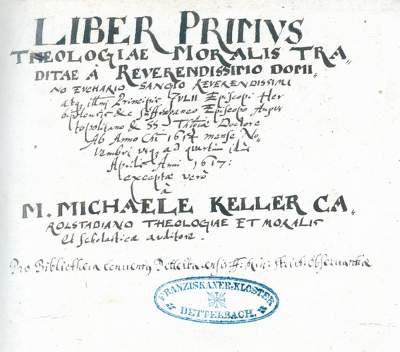 LIBER PRIMVS
THEOLOGIAE MORALIS TRA
DITAE A REVERENDISSIMO DOMI.
NO EUCHARIO SANGIO REVERENDISSIMI
Principis IVLII Episcopi Her
bipolensis &c Suffraganeo Episcopo Augus
topolitano & SS. Doctore
Ab Anno Chr̄i 1614 mense No.
vembri usq ad quartum
Aprilis Anni 1617:
exceptae verò
à
M. MICHAELE KELLER CA.
ROLSTADIANO THEOLOGIAE ET MORALIS
et Scholasticae auditore.
Pro Bibliotheca Conventus strict: observantiae
FRANZISKANER-KLOSTER
DETTELBACH.